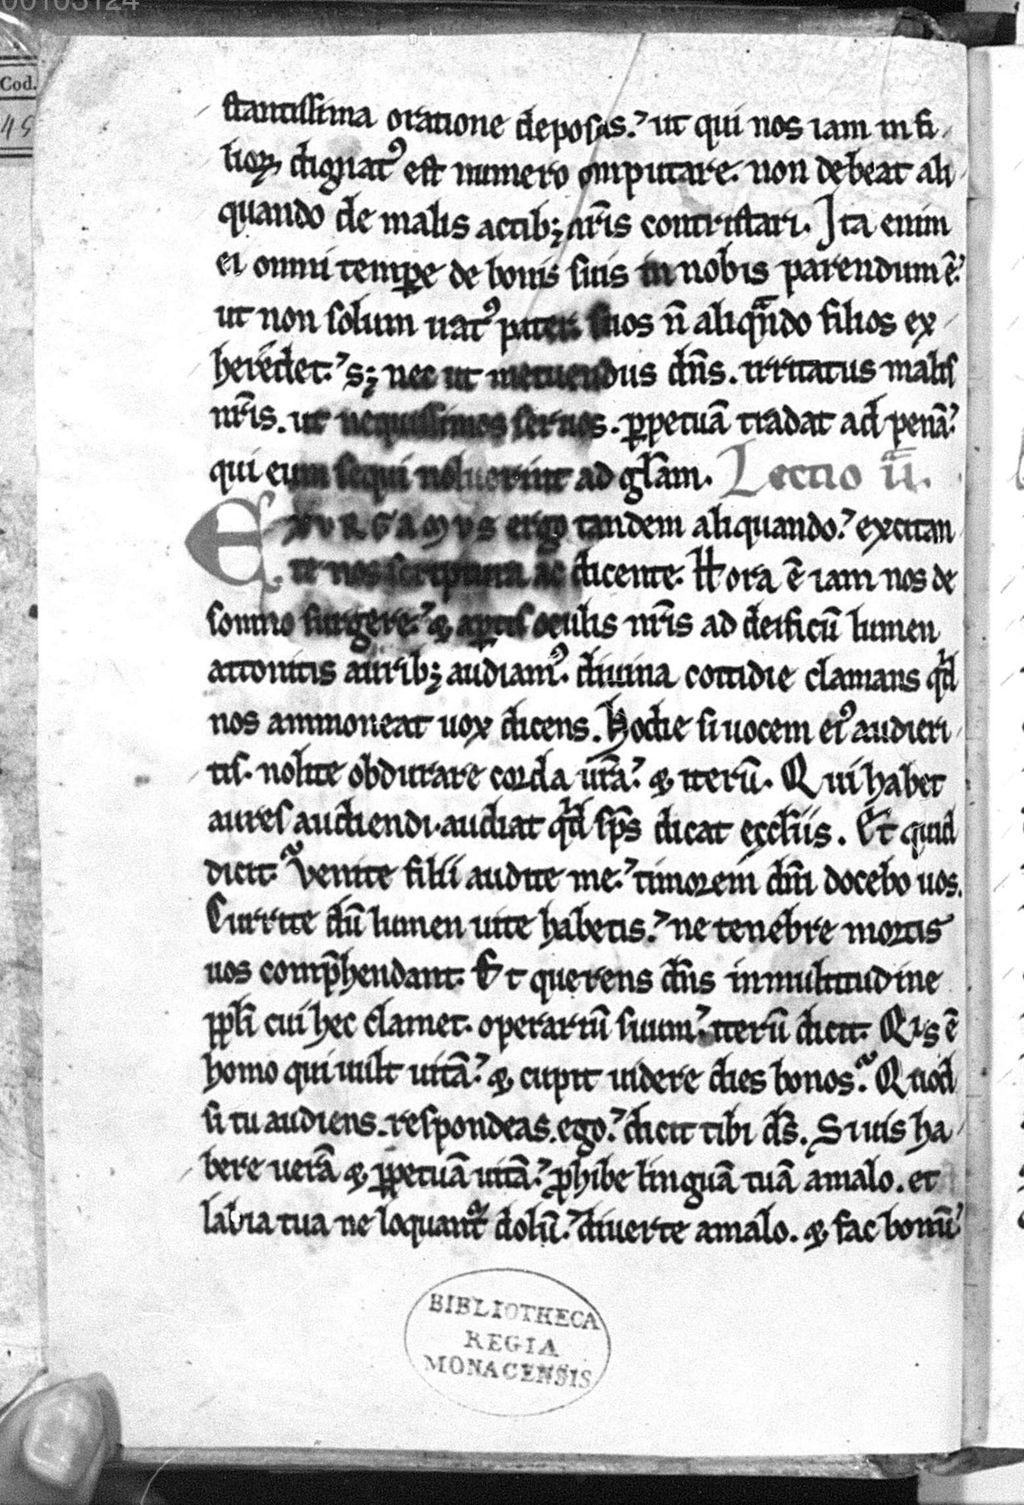 00103124
Cod.
45
stantissima oratione deposcas. ut qui nos iam in fi
lioꝝ dignatꝰ est numero computare. non debeat ali
quando de malis actibꝫ nr̄is contristari. Ita enim
ei omni temꝑe de bonis suis in nobis parendum ē.
ut non solum iratꝰ pater suos n̄ aliqn̄do filios ex
heredet. sꝫ nec ut metuendus dn̄s. irritatus malis
nr̄is. ut nequissimos seruos. ꝑpetuā tradat ad penā.
qui eum sequi noluerint ad gl̄am. Lectio II.
EXURGAMUS ergo tandem aliquando. excitan
te nos scriptura ac dicente. Hora ē iam nos de
somno surgere. ⁊ aꝑtis oculis nr̄is ad deificū lumen
attonitis auribꝫ audiamꝰ. diuina cottidie clamans qd̄
nos ammoneat uox dicens. Hodie si uocem eiꝰ audieri
tis. nolite obdurare corda ur̄a. ⁊ iterū. Qui habet
aures audiendi. audiat qd̄ sp̄s dicat eccl̄iis. Et quid
dicit. Venite filii audite me. timorem dn̄i docebo uos.
Currite dū lumen uite habetis. ne tenebre mortis
uos comp̄hendant. Et querens dn̄s in multitudine
ppl̄i cui hec clamet. operariū suum. iterū dicit. Qis ē
homo qui uult uitā. ⁊ cupit uidere dies bonos. Quod
si tu audiens. respondeas. ego. dicit tibi ds̄. Si uis ha
bere uerā ⁊ ꝑpetuā uitā. ꝓhibe linguā tuā a malo. et
labia tua ne loquant᷑ dolū. diuerte a malo. ⁊ fac bonū
BIBLIOTHECA
REGIA
MONACENSIS